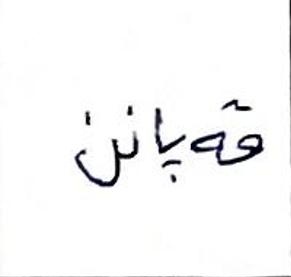 قەپانن